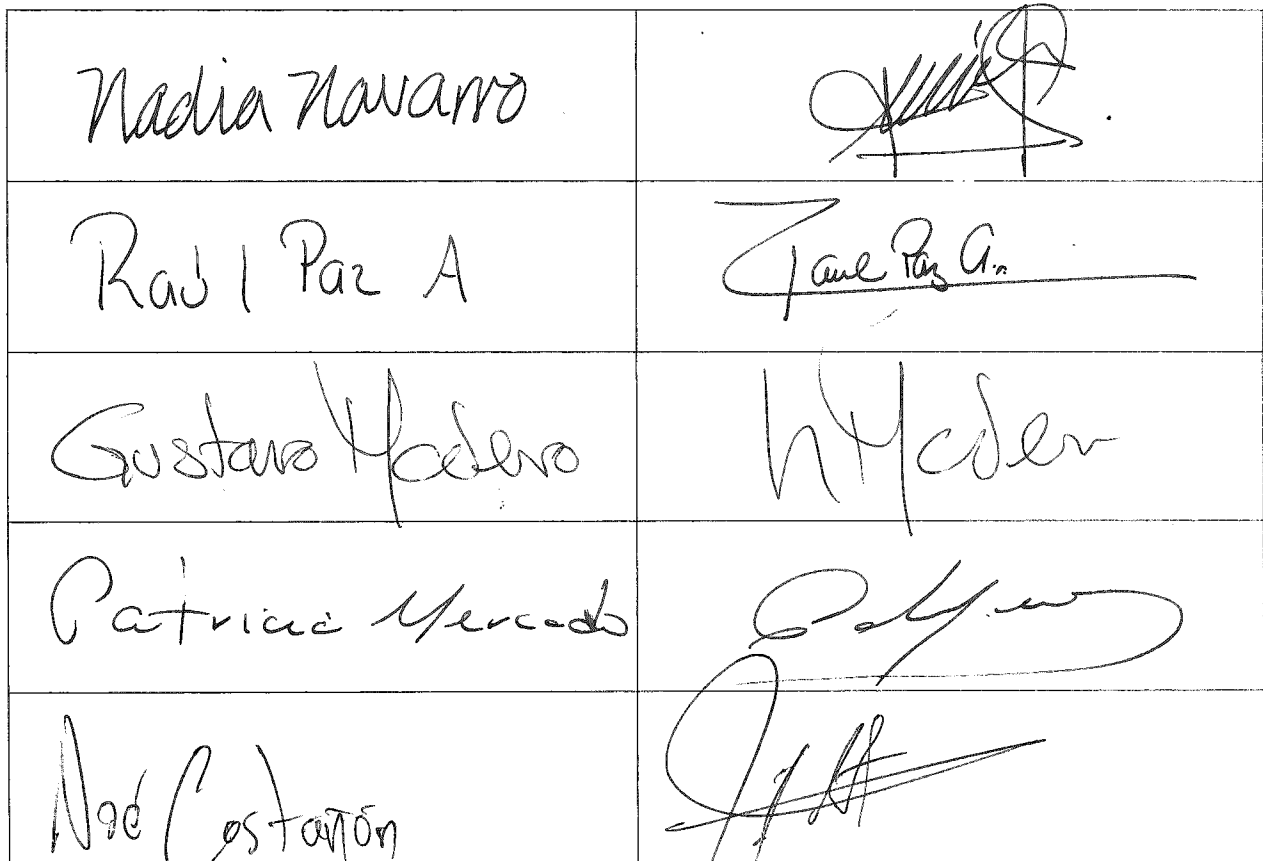 Nadia Navarro
Raúl Paz A Raul Paz A.
Gustavo Madero Madero
Patricia Mercado
Noé Castañón